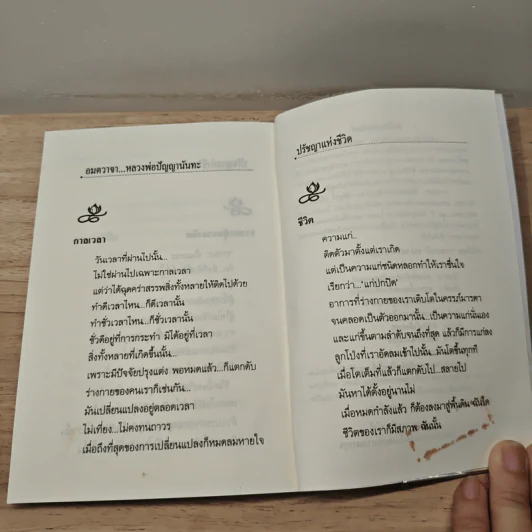 อมตวาจา...หลวงพ่อปัญญานันทะ
กาลเวลา
วันเวลาที่ผ่านไปนั้น...
ไม่ใช่ผ่านไปเฉพาะกาลเวลา
แต่ว่าได้ฉุดคร่าสรรพสิ่งทั้งหลายให้ติดไปด้วย
ทำดีเวลาไหน...ก็ดีเวลานั้น
ทำชั่วเวลาไหน...ก็ชั่วเวลานั้น
ชั่วดีอยู่ที่การกระทำ มิได้อยู่ที่เวลา
สิ่งทั้งหลายที่เกิดขึ้นนั้น...
เพราะมีปัจจัยปรุงแต่ง พอหมดแล้ว...ก็แตกดับ
ร่างกายของคนเราก็เช่นกัน...
มันเปลี่ยนแปลงอยู่ตลอดเวลา
ไม่เที่ยง...ไม่คงทนถาวร
เมื่อถึงที่สุดของการเปลี่ยนแปลงก็หมดลมหายใจ
ปรัชญาแห่งชีวิต
ชีวิต
ความแก่...
ติดตัวมาตั้งแต่เราเกิด
แต่เป็นความแก่ชนิดหลอกทำให้เราชื่นใจ
เรียกว่า...'แก่ปกปิด'
อาการที่ร่างกายของเราเติบโตในครรภ์มารดา
จนคลอดเป็นตัวออกมานั้น...เป็นความแก่นั่นเอง
และแก่ขึ้นตามลำดับจนถึงที่สุด แล้วก็มีการแก่ลง
ลูกโป่งที่เราอัดลมเข้าไปนั้น...มันโตขึ้นทุกที
เมื่อโตเต็มที่แล้วก็แตกดับไป...สลายไป
มันหาได้ตั้งอยู่นานไม่
เมื่อหมดกำลังแล้ว ก็ต้องลงมาสู่พื้นดิน ฉันใด
ชีวิตของเราก็มีสภาพ ฉันนั้น